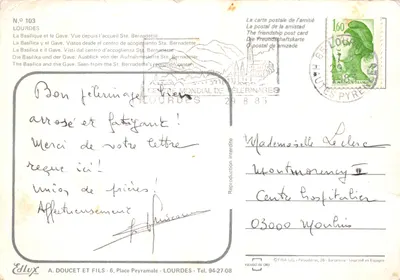 N.º 103
LOURDES
La Basilique et le Gave. Vue depuis l'accueil Ste. Bernadette
La Basílica y el Gave. Vistas desde el centro de acogimiento Ste. Bernadette
La Basilica e il Gave. Visti dal centro d'accoglienza Ste. Bernadette
Die Basilika und der Gave. Ausblick von der Aufnahmestelle Ste. Bernadette
The Basilica and the Gave. Seen from the St. Bernadette's reception
La carte postale de l'amitié
La postal de la amistad
The friendship card
Die Freundschaftskarte
O postal de amizade
1,60
MONDIAL DE PELERINAGES
LOURDES
PYRENEES
Bon pélerinage bien
arrosé et fatigant !
Merci de votre lettre
reçue ici !
Union de prières !
Affectueusement
Reproduction interdite
Mademoiselle Leclerc
Montmorency II
Centre hospitalier
03000 Moulins
A. DOUCET ET FILS - 6, Place Peyramale - LOURDES - Tel. 94-27-08